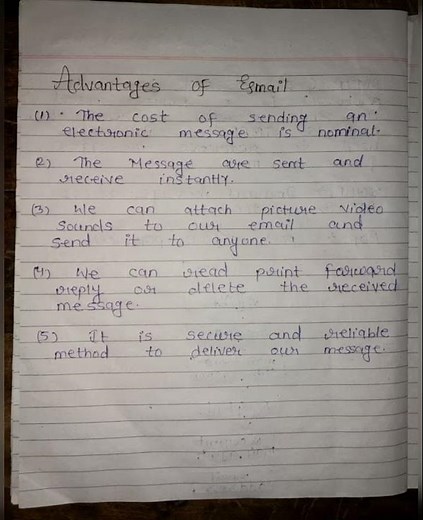 Advantages of Email
(1) The cost of sending an
electronic message is nominal.
(2) The Message are sent and
receive instantly.
(3) We can attach picture video
sounds to our email and
send it to anyone.
(4) We can read print forward
reply or delete the received
message.
(5) It is secure and reliable
method to deliver our message.